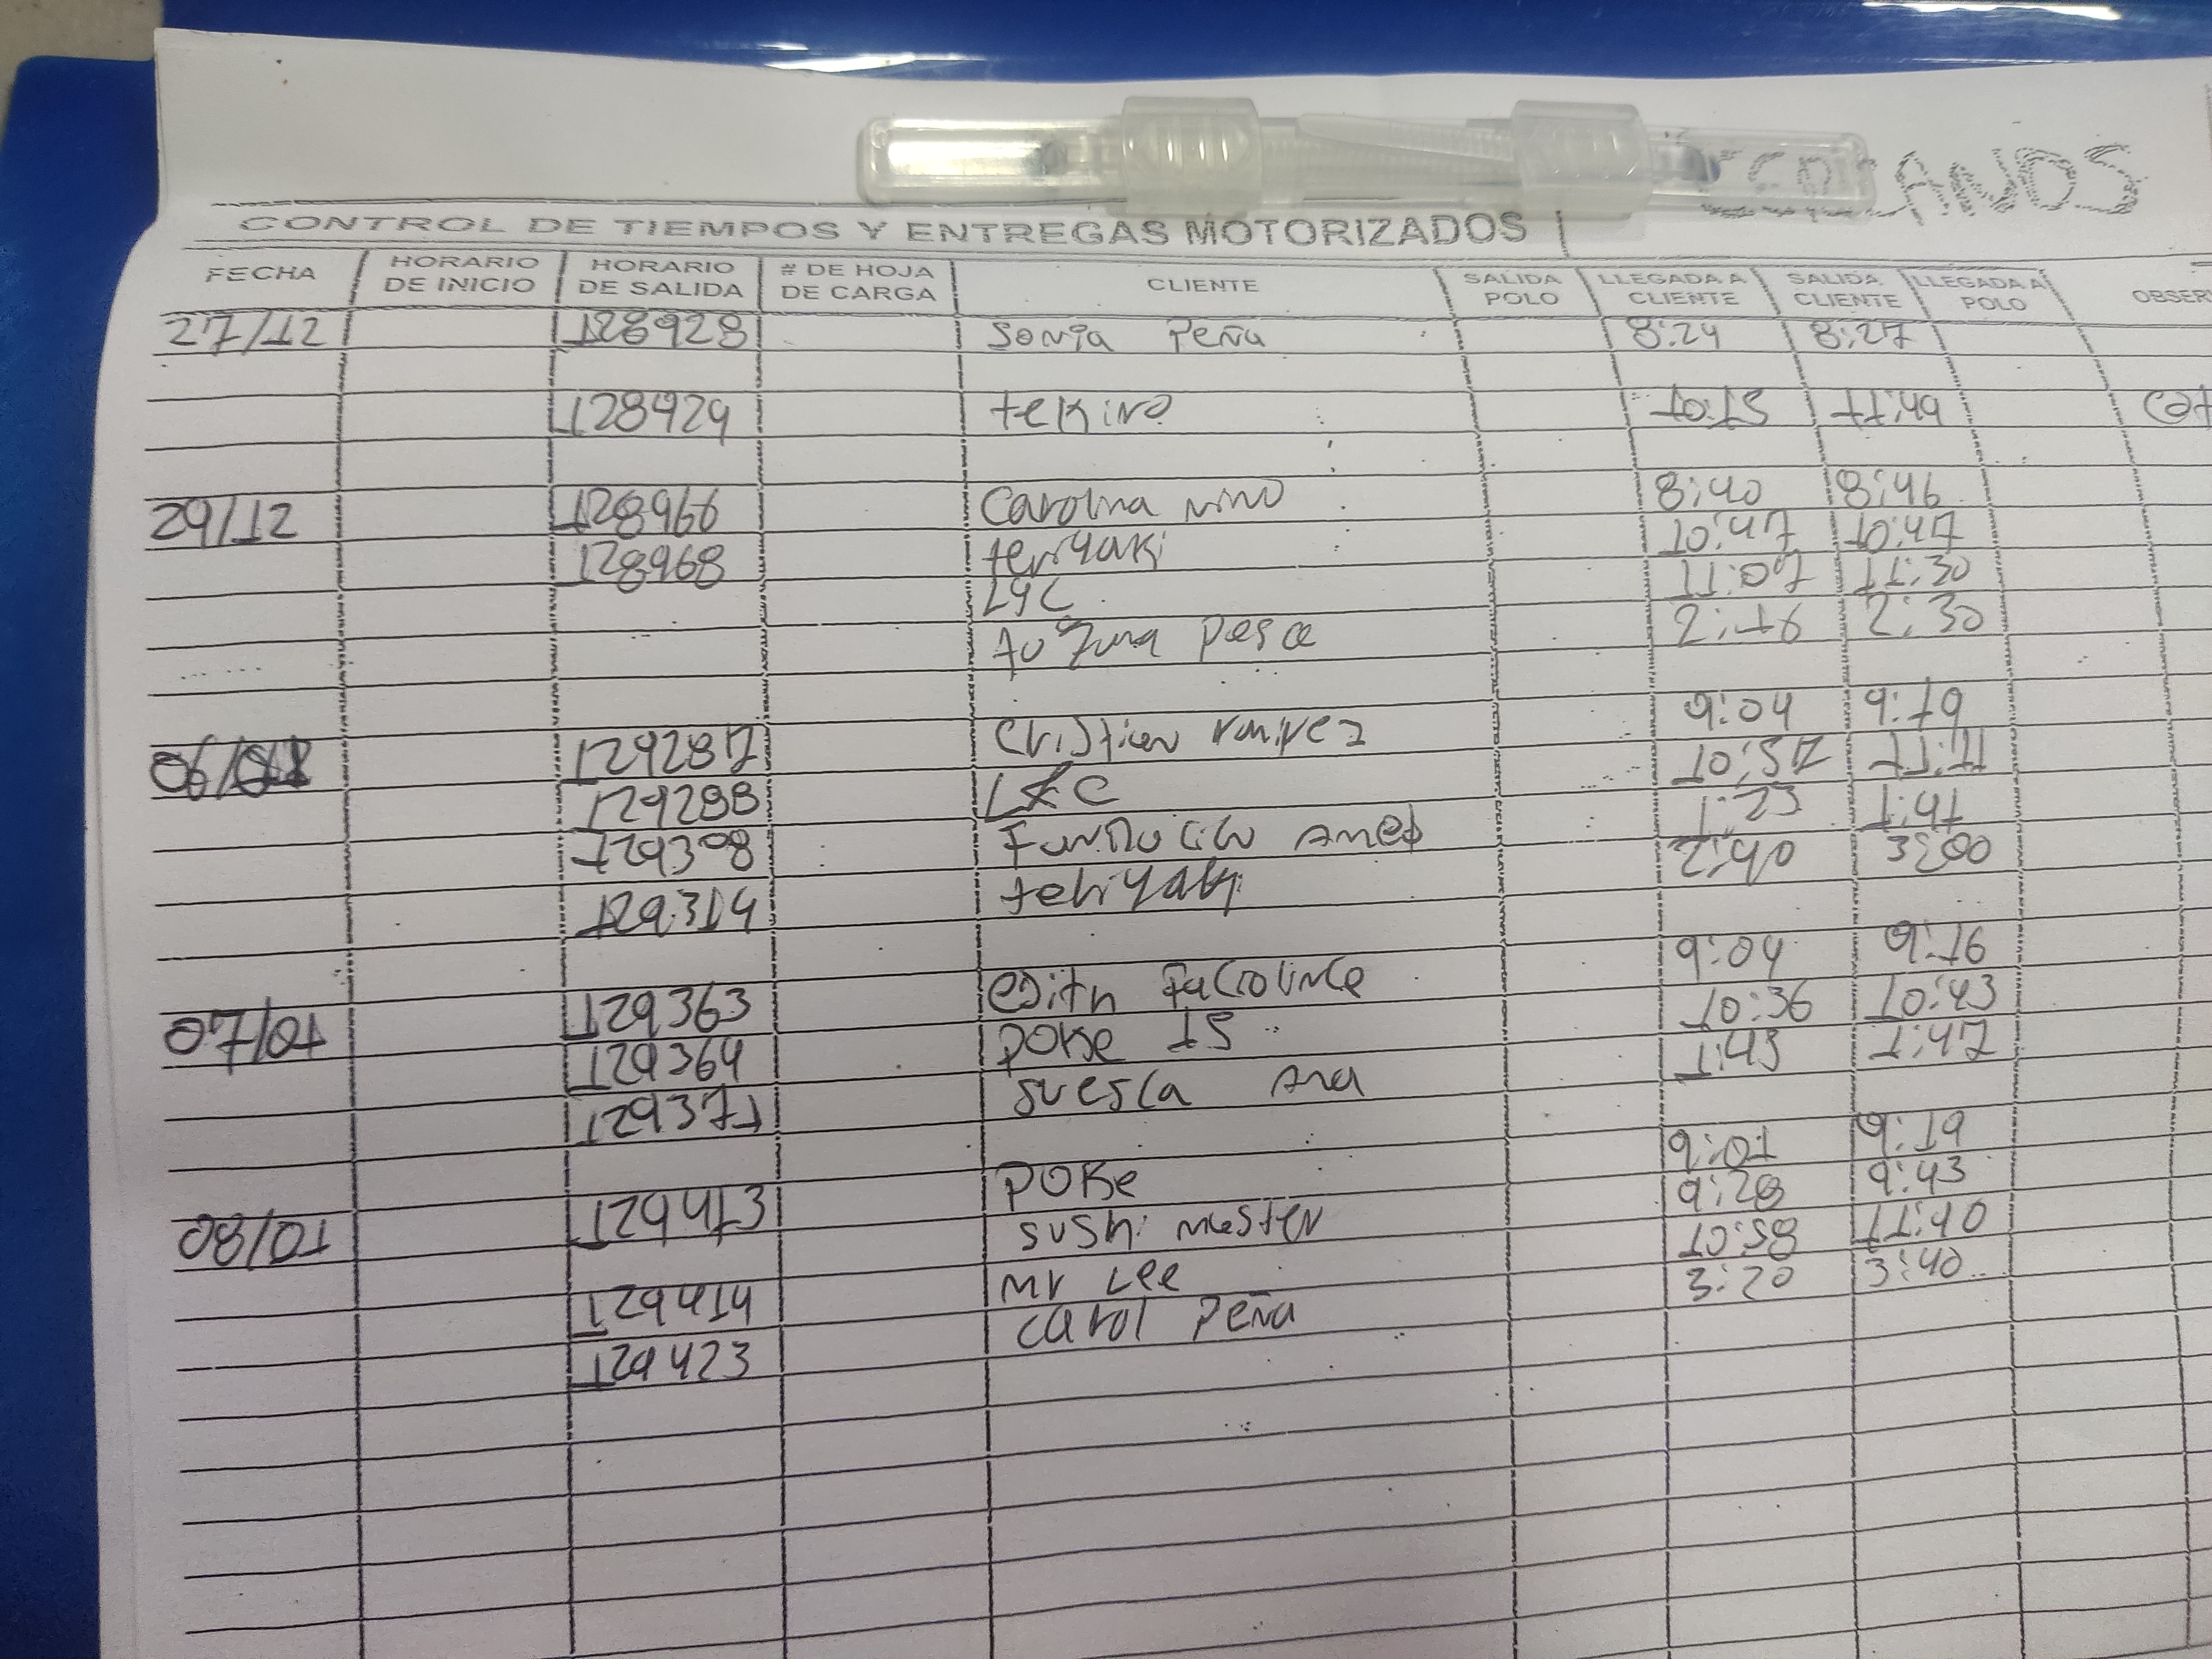 CONTROL DE TIEMPOS Y ENTREGAS MOTORIZADOS
FECHA HORARIO DE INICIO HORARIO DE SALIDA # DE HOJA DE CARGA CLIENTE SALIDA POLO LLEGADA A CLIENTE SALIDA CLIENTE LLEGADA A POLO OBSER
27/12 128928 Sonia Peña 8:24 8:27
128929 tekino 10:15 11:49
29/12 128966 Carolina nino 8:40 8:46
128968 teriyaki 10:47 10:47
LYC 11:07 11:30
Pesca 2:16 2:30
129287 Cristian ramirez 9:04 9:19
06/01 129288 LYC 10:57 11:11
129308 1:23 1:41
129314 teriyaki 2:40 3:00
129363 edith 9:04 9:16
07/01 129364 POKe 15 10:36 10:43
129371 suesca Ana 1:43 1:47
POKe 9:01 9:19
08/01 129413 sushi master 9:28 9:43
129414 Mr Lee 10:58 11:40
129423 carol Peña 3:20 3:40